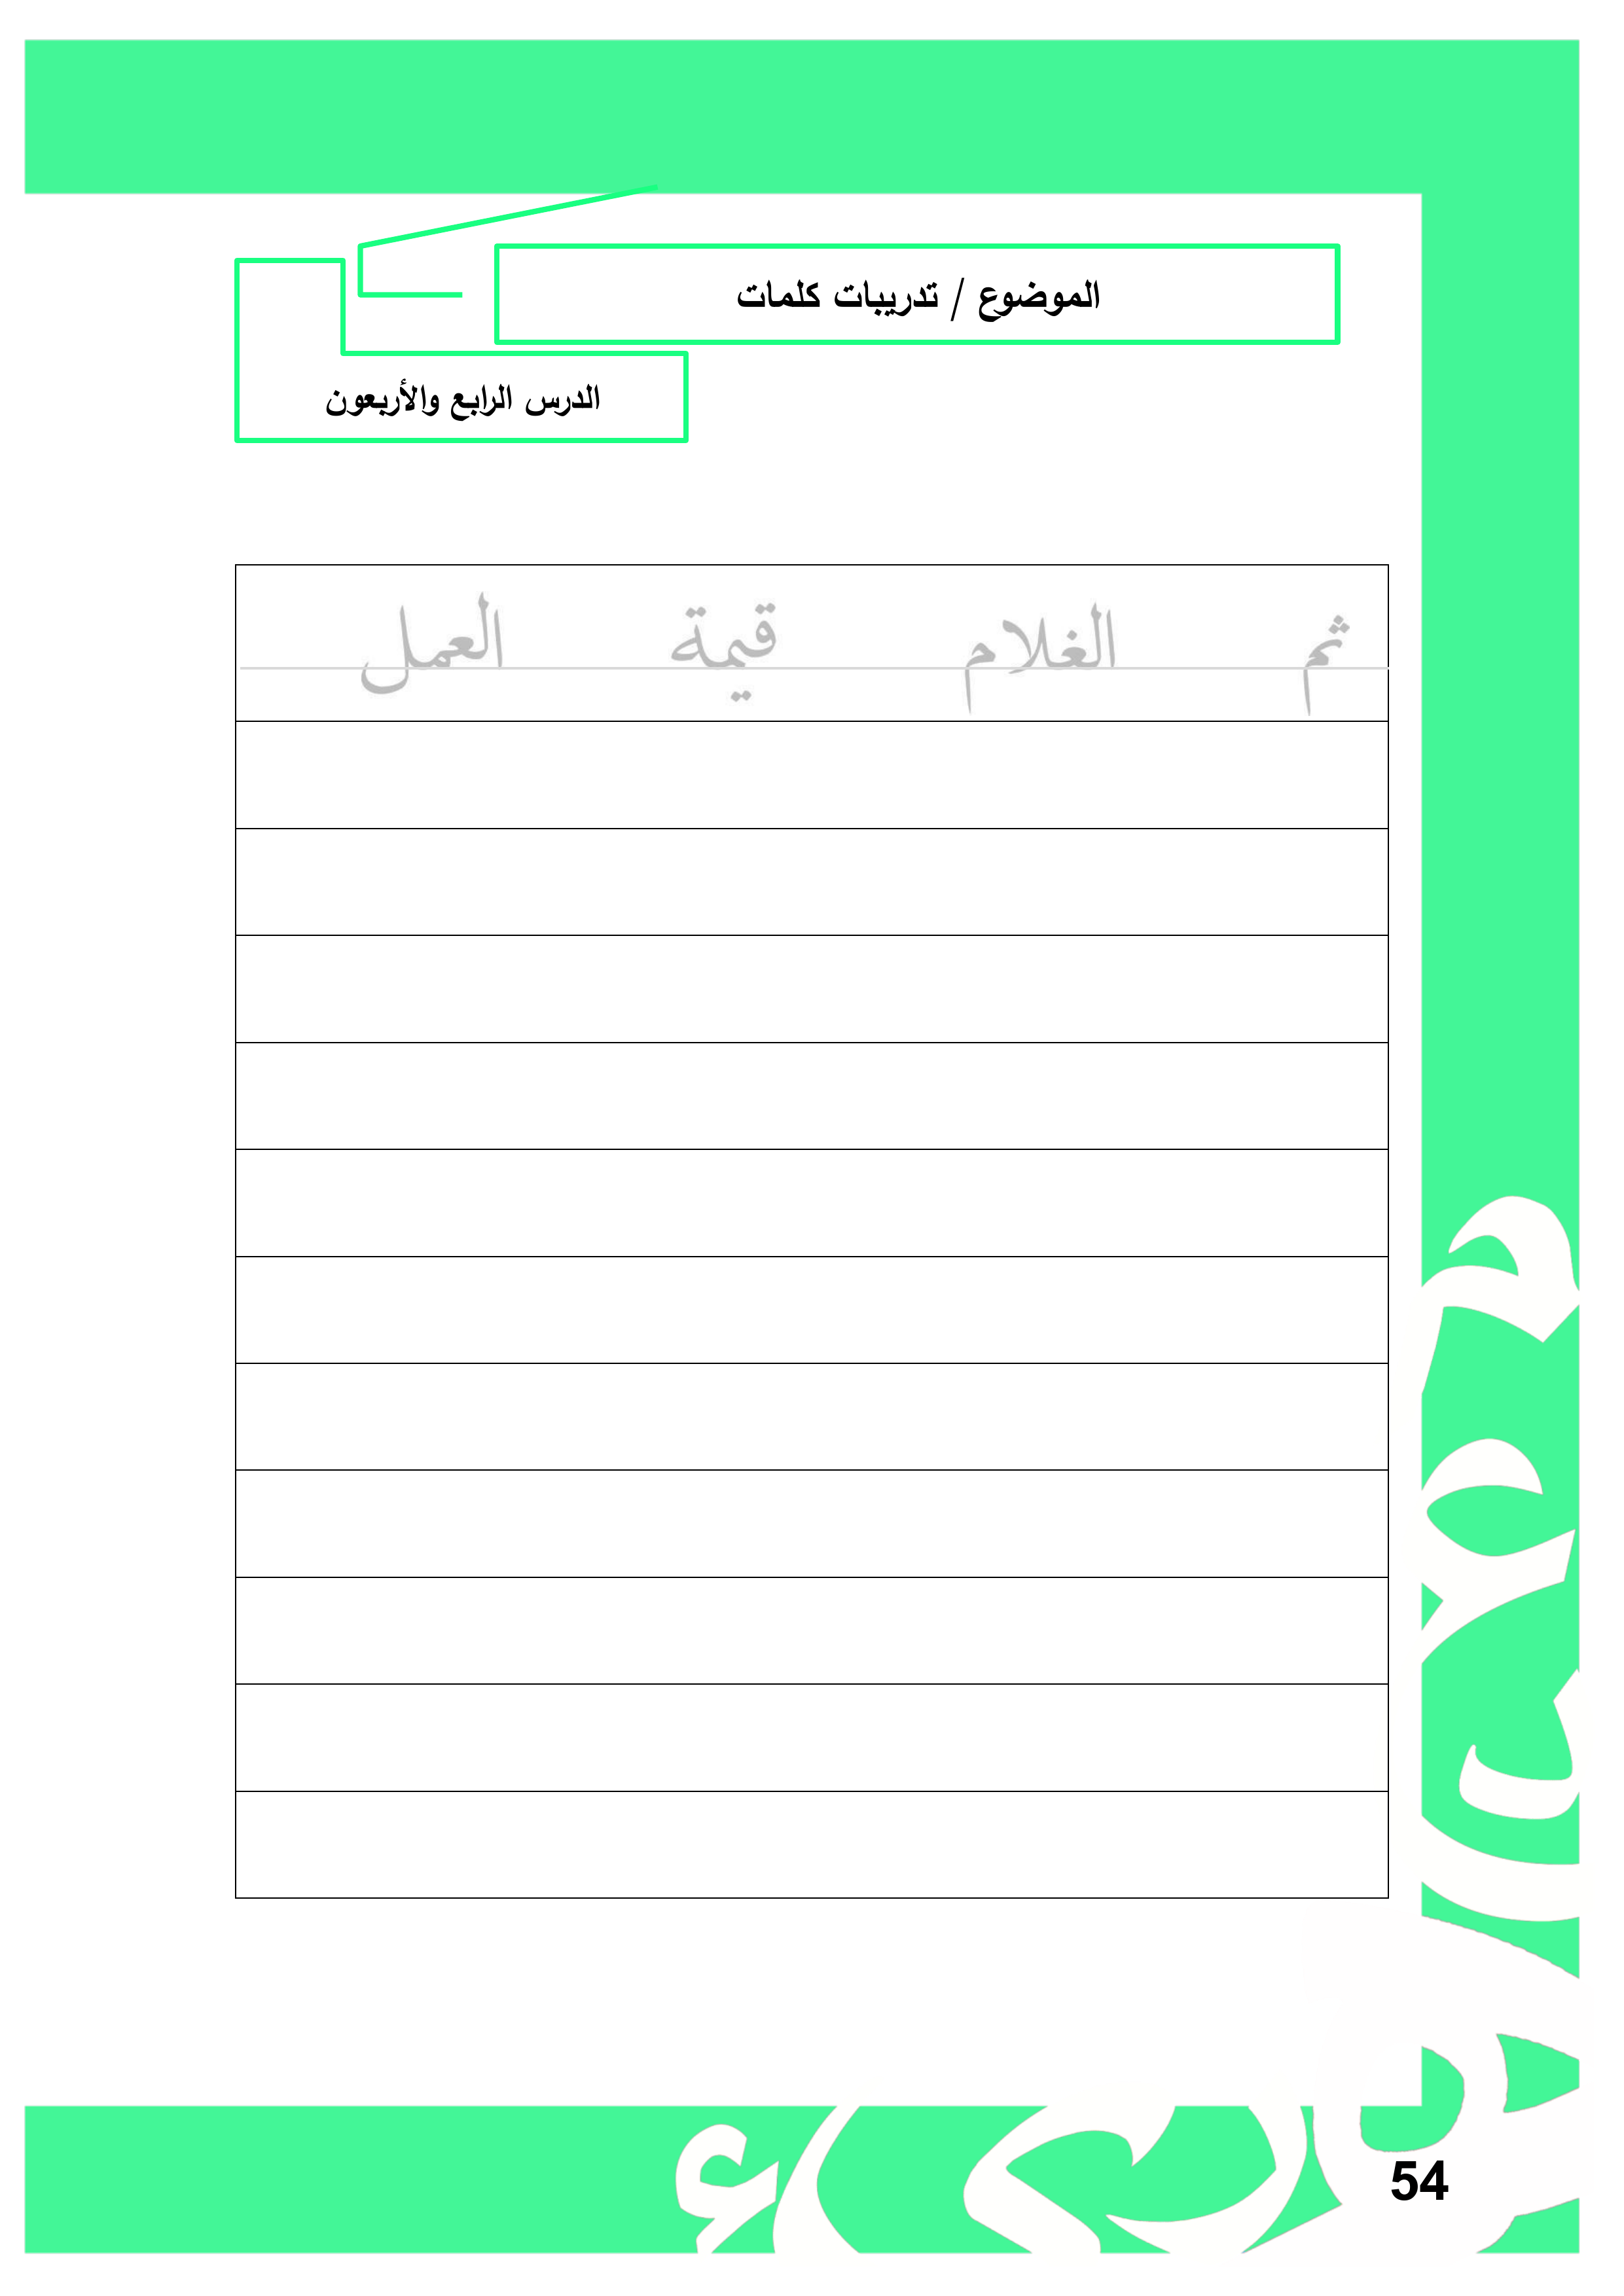 الموضوع / تدريبات كلمات
الدرس الرابع والأربعون
ثم الغلام قيمة العمل
54